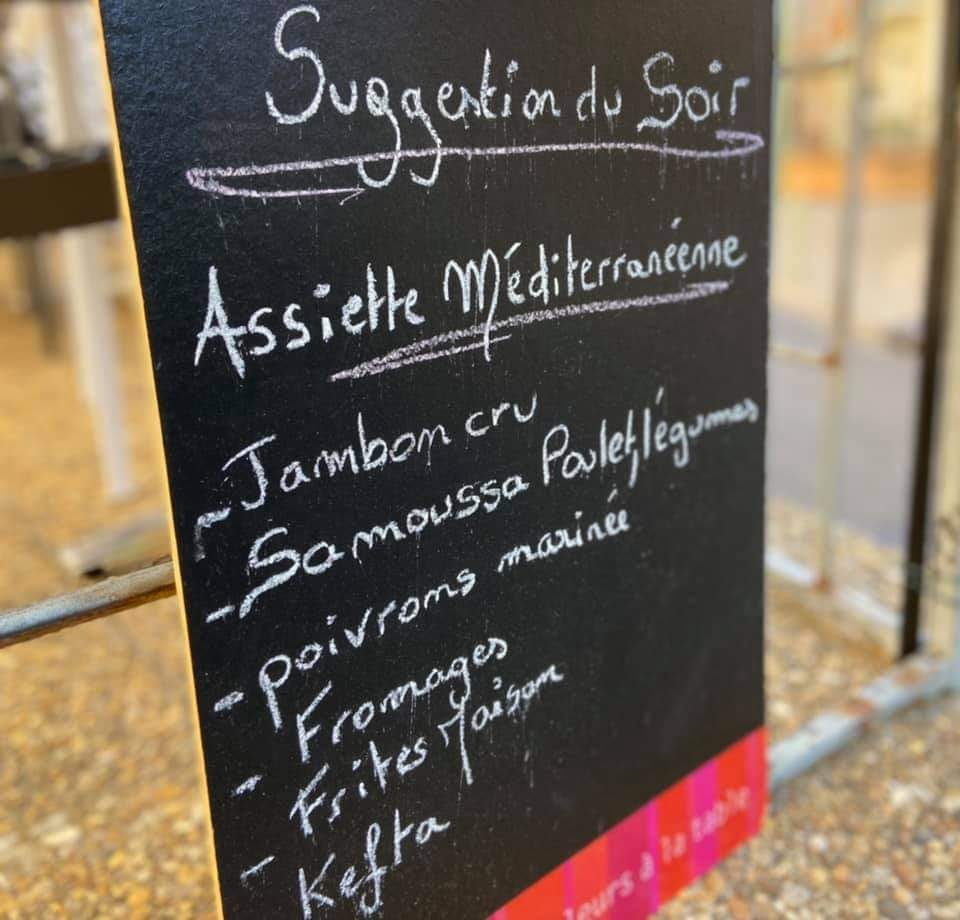 Suggestion du Soir
Assiette Méditerranéenne
- Jambon cru
- Samoussa Poulet, légumes
- poivrons marinée
- Fromages
- Frites Maison
Kefta
leurs à la table